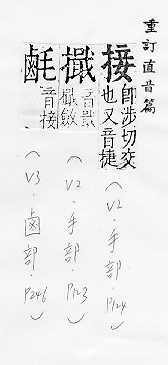 重訂直音篇
接 即涉切交
也又音捷
(V2.手部.P124)
(V2.手部.P123)
音接
(V3.鹵部.P246)